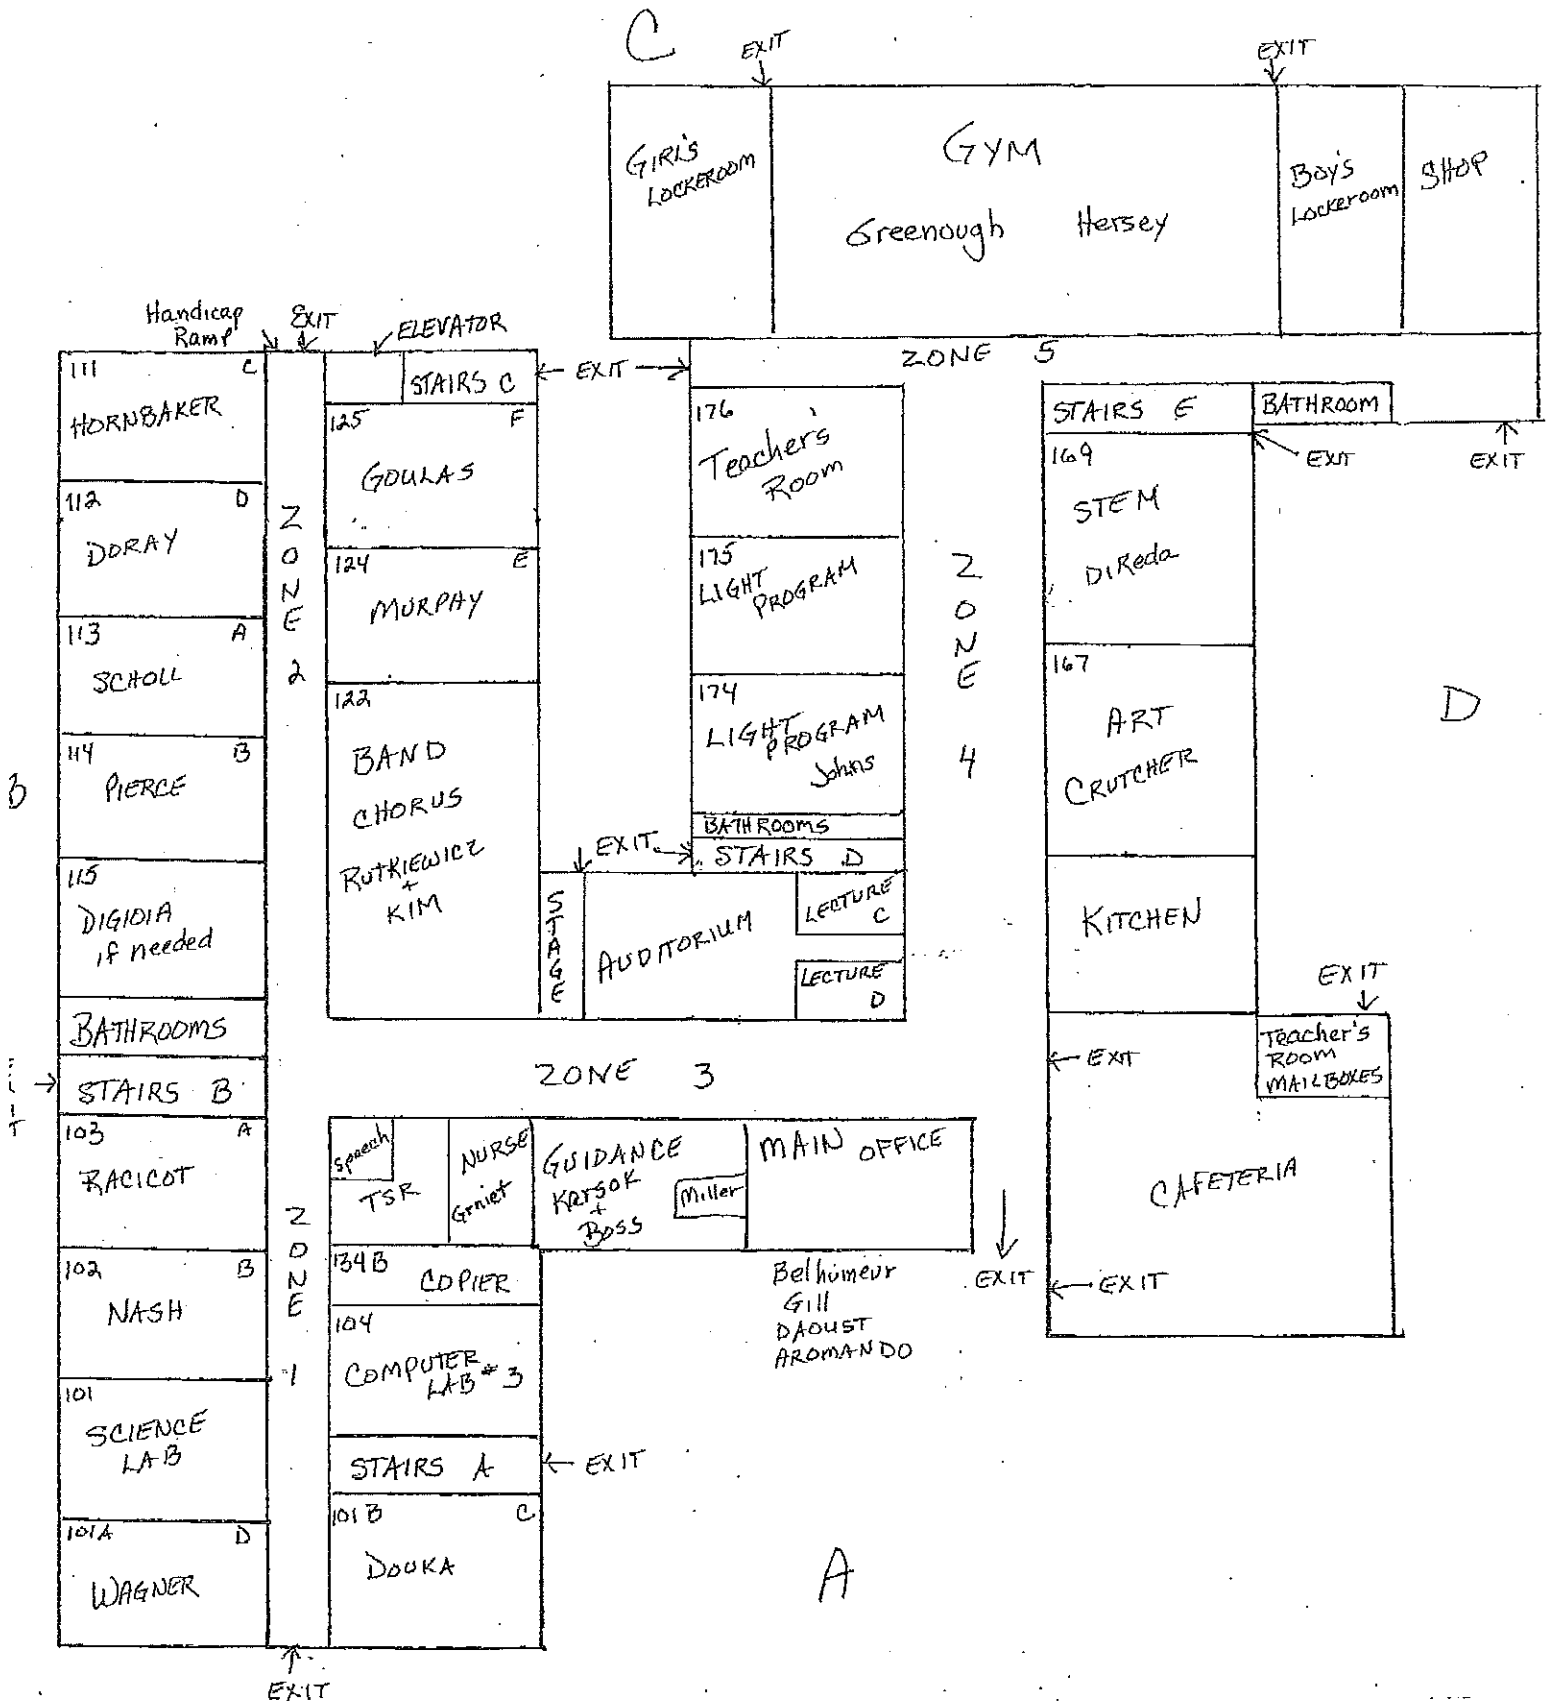 C
EXIT
EXIT
GIRL'S
LOCKEROOM
GYM
Greenough Hersey
Boy's
Lockeroom
SHOP
Handicap
Ramp
EXIT
ELEVATOR
ZONE 5
111 C
HORNBAKER
112 D
DORAY
113 A
SCHOLL
114 B
PIERCE
115
DIGIOIA
if needed
BATHROOMS
STAIRS B
103 A
RACICOT
102 B
NASH
101
SCIENCE
LAB
101A D
WAGNER
B
ZONE 2
ZONE 1
EXIT
STAIRS C
EXIT
125 F
GOULAS
124 E
MURPHY
122
BAND
CHORUS
RUTKIEWICZ
+
KIM
STAGE
EXIT
AUDITORIUM
LECTURE
C
LECTURE
D
176
Teacher's
Room
175
LIGHT
PROGRAM
174
LIGHT
PROGRAM
Johns
BATHROOMS
STAIRS D
ZONE 4
STAIRS E
BATHROOM
EXIT
EXIT
169
STEM
DiReda
167
ART
CRUTCHER
KITCHEN
D
EXIT
Teacher's
Room
MAILBOXES
EXIT
CAFETERIA
EXIT
ZONE 3
Speech
TSR
NURSE
GUIDANCE
Karsok
+
Boss
Miller
MAIN OFFICE
Belhumeur
Gill
DAOUST
AROMANDO
EXIT
134B
COPIER
104
COMPUTER
LAB #3
STAIRS A
EXIT
101B C
DOUKA
A